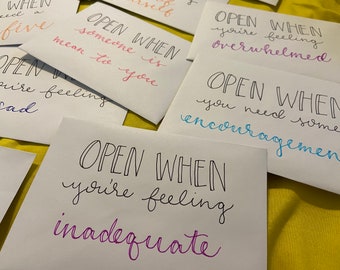 OPEN WHEN
someone is
mean to you
OPEN WHEN
you're feeling
overwhelmed
OPEN WHEN
you need some
encouragement
you're feeling
sad
OPEN WHEN
you're feeling
inadequate